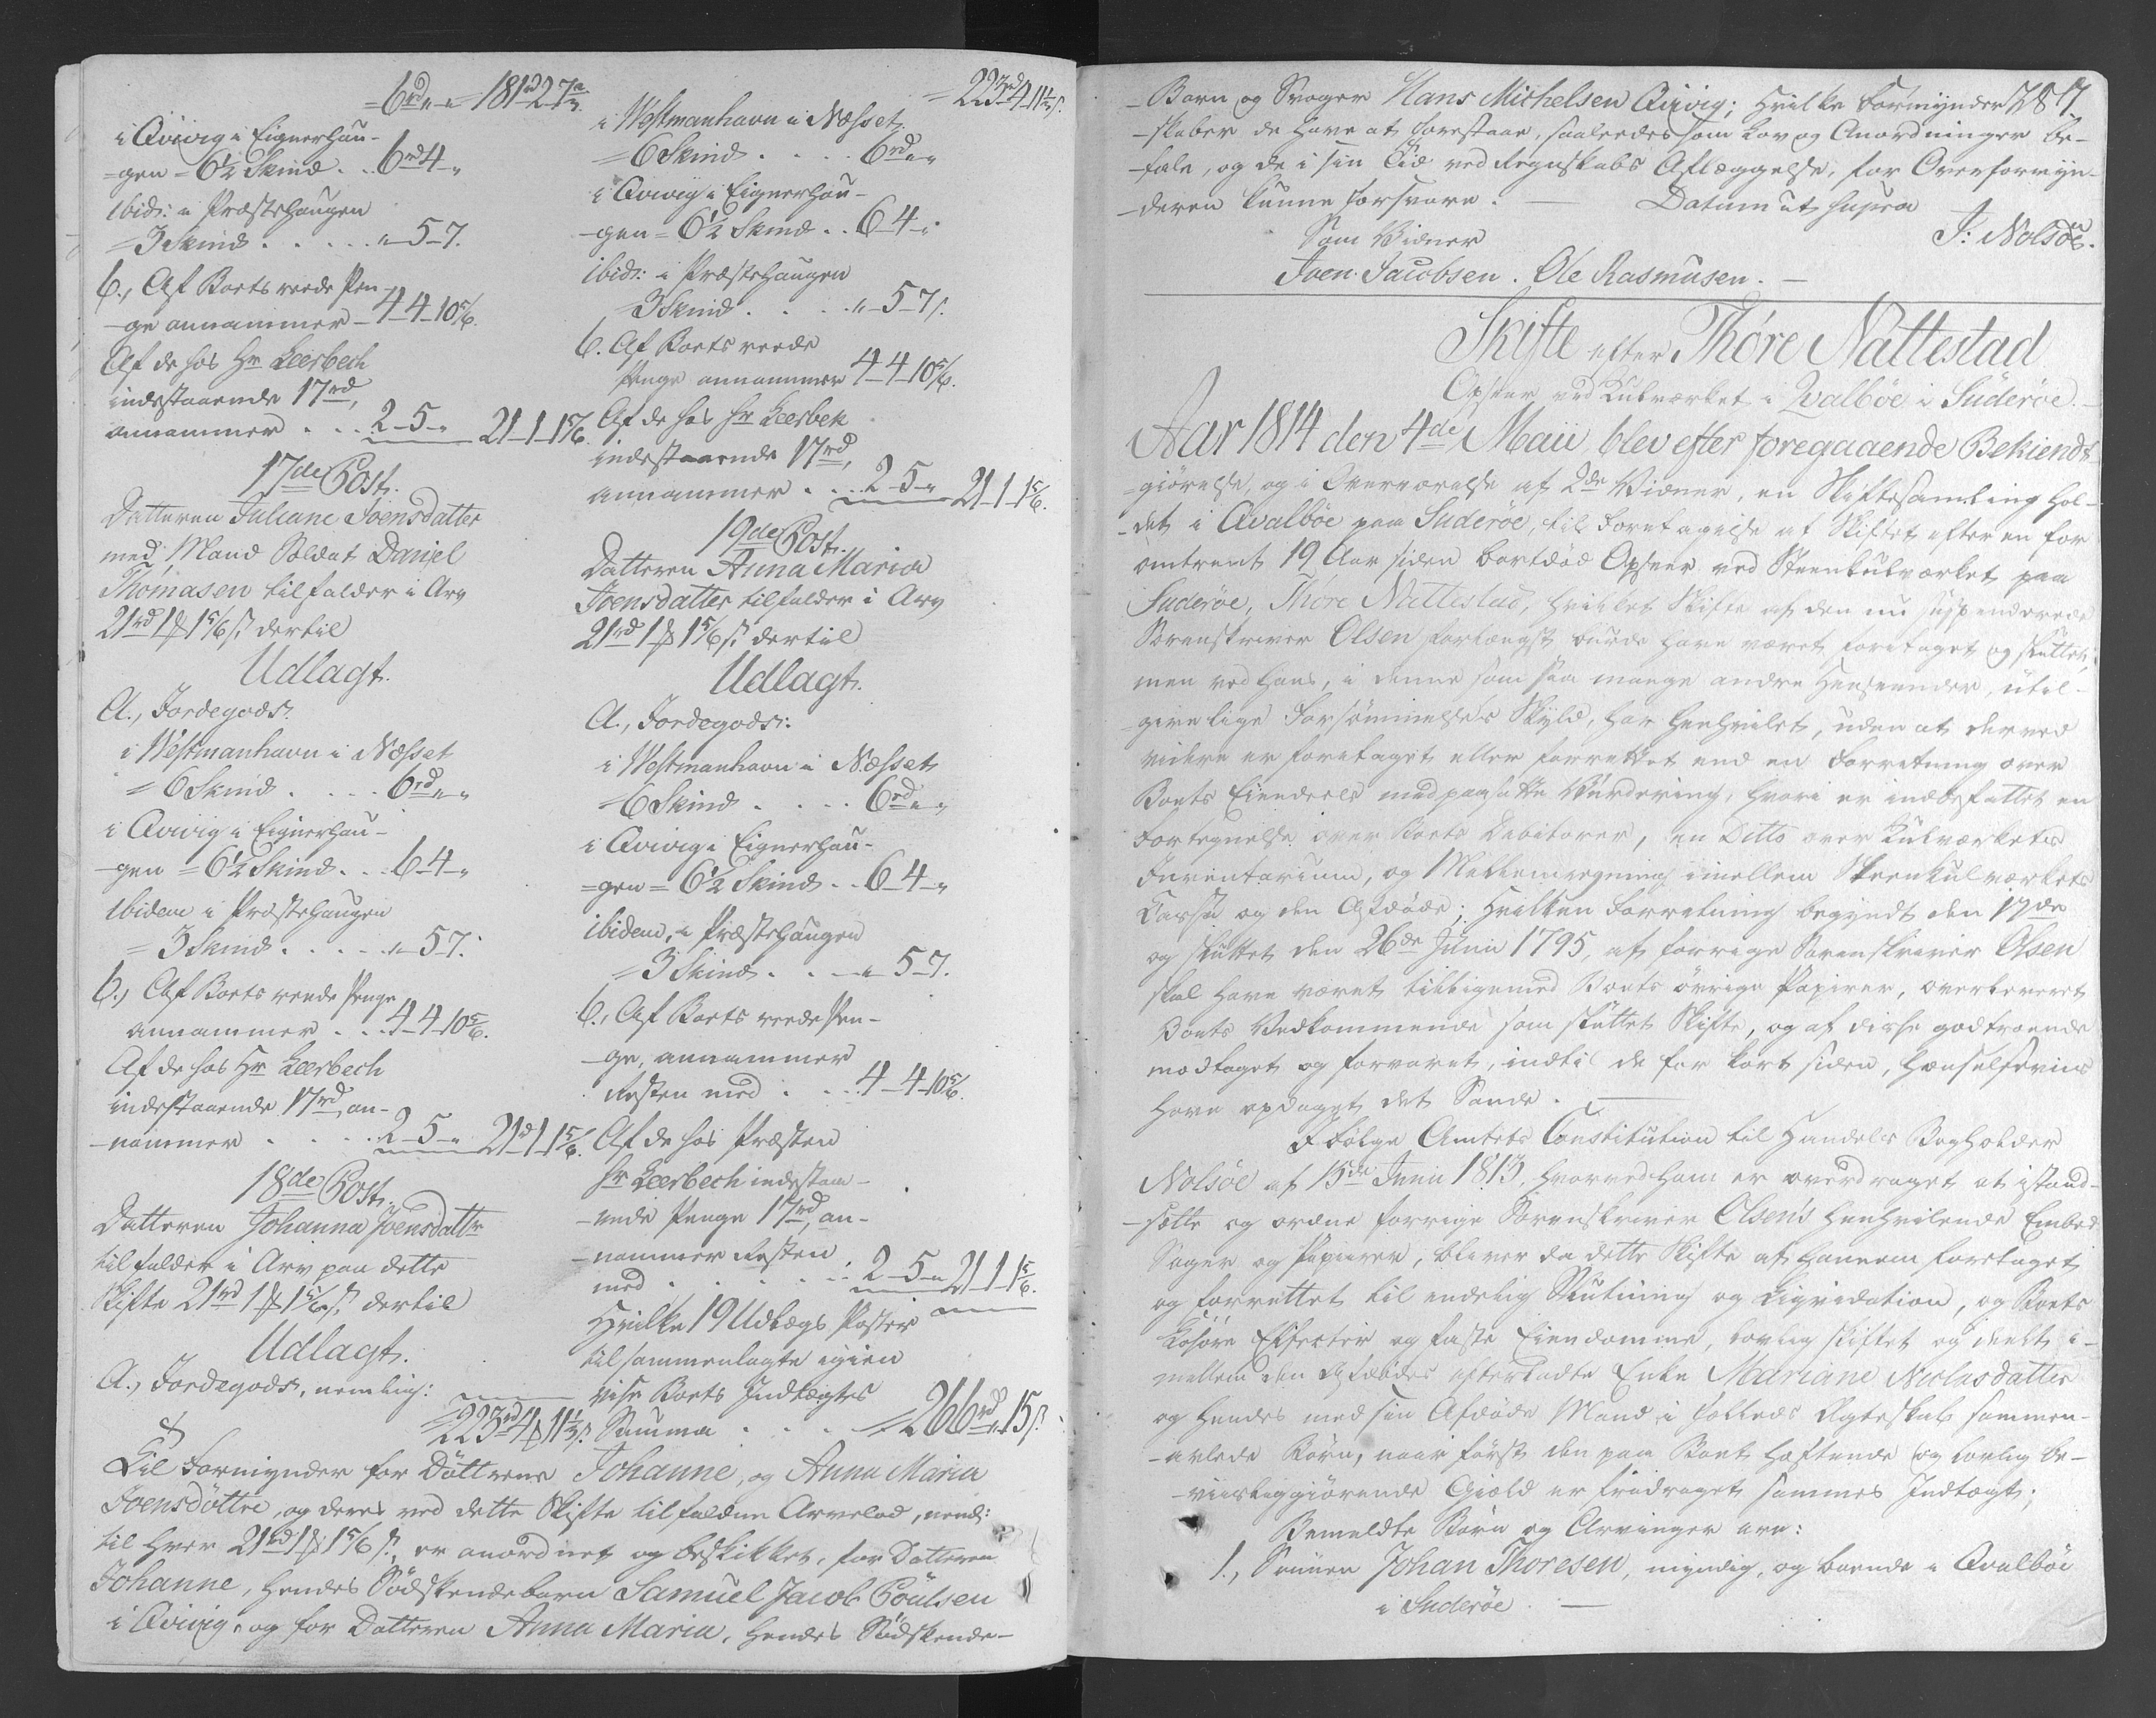 =6rd „ „ = 181rd 2 7½.
i Qvivig i Eignerhau-
=gen = 6½ Skind . . 6rd 4 „
ibid: i Præstehaugen
= 3 Skind . . . . . „ 5 7.
b., Af Boets reede Pen-
-ge annammer - 4-4-10 5/6.
Af de hos Hr Leerbech
indestaaende 17rd,
annammer . . . 2-5-„ 21-1-1 5/6.
17de Post.
Datteren Juliane Joensdatter
med Mand Soldat Daniel
Thomasen tilfalder i Arv
21rd 1 ₰ 1 5/6 s. dertil
Udlagt.
A., Jordegods.
i Westmanhavn i Næsset
= 6 Skind . . . . 6rd „ „
i Qvivig i Eignerhau-
-gen = 6½ Skind . . 6-4-„
ibidem i Præstehaugen
= 3 Skind . . . . „ 5-7.
b., Af Boets reede Penge
annammer . . . 4-4-10 5/6.
Af de hos Hr Leerbech
indestaaende 17rd, an-
-nammer . . . . 2-5-„ 21rd 1-1 5/6.
18de Post.
Datteren Johanna Joensdattr
tilfalder i Arv paa dette
Skifte 21rd 1 ₰ 1 5/6 s. dertil
Udlagt.
A., Jordegods, nemlig:
= 223rd 4 ₰ 11½ s.
= 223rd 4-11½ s.
i Westmanhavn i Næsset
= 6 Skind . . . . 6rd „ „
i Qvivig i Eignerhau-
-gen = 6½ Skind . . 6-4-„
ibid: i Præstehaugen
= 3 Skind . . . . „-5-7 s.
b. Af Boets reede
Penge annammer 4-4-10 5/6.
Af de hos Hr Leerbek
indestaaende 17rd,
annammer . . . 2-5-„ 21-1-1 5/6.
19de Post.
Datteren Anna Maria
Joensdatter tilfalder i Arv
21rd 1 ₰ 1 5/6 s. dertil
Udlagt.
A., Jordegods:
i Westmanhavn i Næsset
= 6 Skind . . . . 6rd „ „
i Qvivig i Eignerhau-
=gen = 6½ Skind . . 6-4-„
ibidem, i Præstehaugen
= 3 Skind . . . „ 5-7.
b., Af Boets reede Pen-
-ge, annammer
Resten med . . . 4-4-10 5/6.
Af de hos Præsten
Hr Leerbech indestaa-
-ende Penge 17rd, an-
-nammer Resten
med . . . . . . 2-5-„ 21-1-1 5/6.
Hvilke 19 Udlægs Poster
tilsammenlagte igien
vise Boets Indtægts
Summa . . . . = 266rd „ 15 s.
Til Formynder for Døttrene Johanne, og Anna Maria
Joensdøttre, og deres ved dette Skifte tilfaldne Arvelod, neml:
til hver 21rd 1 ₰ 1 5/6 s., er anordnet og beskikket, for Datteren
Johanne, hendes Sødskendebarn Samuel Jacob Poulsen
i Qvivig, og for Datteren Anna Maria, hendes Sødskende-
-Barn og Svoger Hans Michelsen Qvivig; hvilke Formynder-
-skaber de have at forestaae, saaledes som Lov og Anordninger be-
-fale, og de i sin Tid ved Regnskabs Aflæggelse, for Overformyn-
-deren kunne forsvare. — Datum ut supra
Som Vidner J: Nolsöe.
Joen Jacobsen. Ole Rasmusen. —
Skifte efter Thóre Nattestad
Opseer ved Kulværket i Qvalböe i Suderöe.
Aar 1814 den 4de Maii, blev efter foregaaende Bekiendt-
=giörelse, og i Overværelse af 2de Vidner, en Skiftesamling hol-
-det i Qvalböe paa Suderöe, til Foretagelse af Skiftet efter en for
omtrent 19 Aar siden bortdöd Opseer ved Steenkulværket paa
Suderöe, Thóre Nattestad, hvilket Skifte af den nu suspenderede
Sorenskriver Olsen forlængst burde have været foretaget og sluttet,
men ved hans, i denne som saa mange andre Henseender, util-
-givelige Forsömmelses Skyld, har henhvilet, uden at derved
videre er foretaget eller forrettet end en Forretning over
Boets Eiendeele med paasatte Vurdering, hvori er indbefattet en
Fortegnelse over Boets Debitorer, en Ditto over Kulværkets
Inventarium, og Mellemregning imellem Steenkulværkets
Cassa og den Afdöde; hvilken Forretning begyndt den 17de
og sluttet den 26de Junii 1795, af forrige Sorenskriver Olsen
skal have været tilligemed Boets övrige Papirer, overleveret
Boets Vedkommende som sluttet Skifte, og af disse godtroende
modtaget og forvaret, indtil de for kort siden, hændelseviis
have opdaget det Sande. —
I Fölge Amtets Constitution til Handels Bogholder
Nolsöe af 15de Junii 1813, hvorved ham er overdraget at istand-
-sætte og ordne forrige Sorenskriver Olsen's henhvilende Embed
Sager og Papirer, bliver da dette Skifte af hannem foretaget
og forrettet til endelig Slutning og Liqvidation, og Boets
Losöre Effecter og faste Eiendomme, lovlig skiftet og deelt i-
mellem den Afdödes efterladte Enke Mariane Niclasdatter
og hendes med sin Afdöde Mand i fælleds Ægteskab sammen-
-avlede Börn, naar först den paa Boet heftende og lovlig be-
-viisliggiörende Giæld er fradraget sammes Indtægt;
Bemeldte Börn og Arvinger ere:
1., Sönnen Johan Thoresen, myndig, og boende i Qvalböe
i Suderöe. —